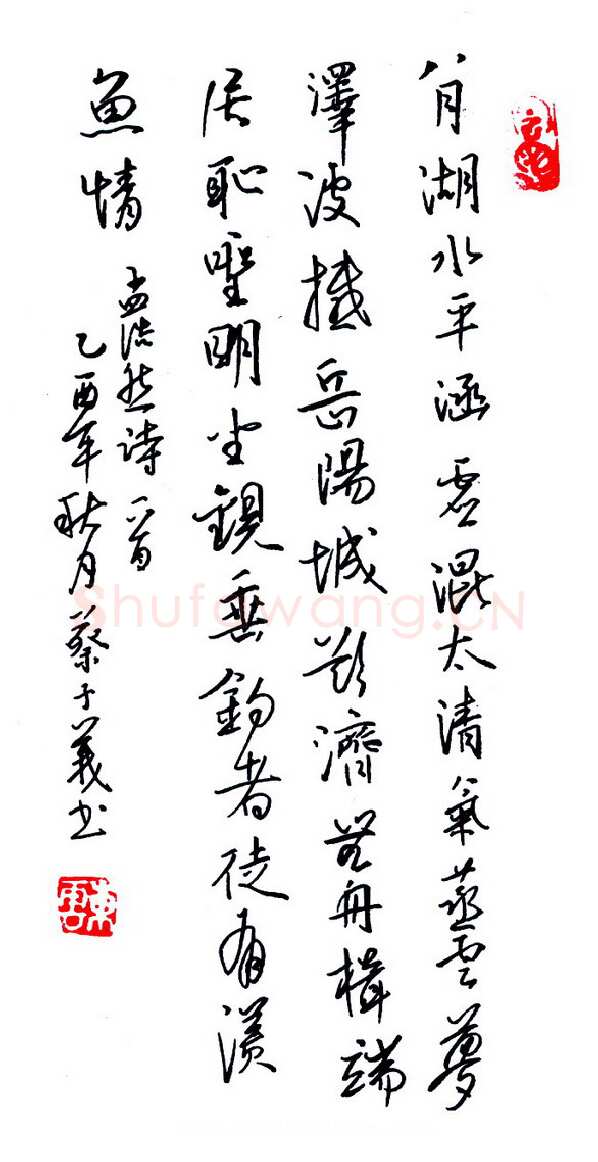 八月湖水平涵虚混太清氣蒸雲夢
澤波撼岳陽城欲濟無舟楫端
居恥聖明坐觀垂釣者徒有羨
魚情
孟浩然詩一首
乙酉年秋月蔡子義書
Shufawang.CN